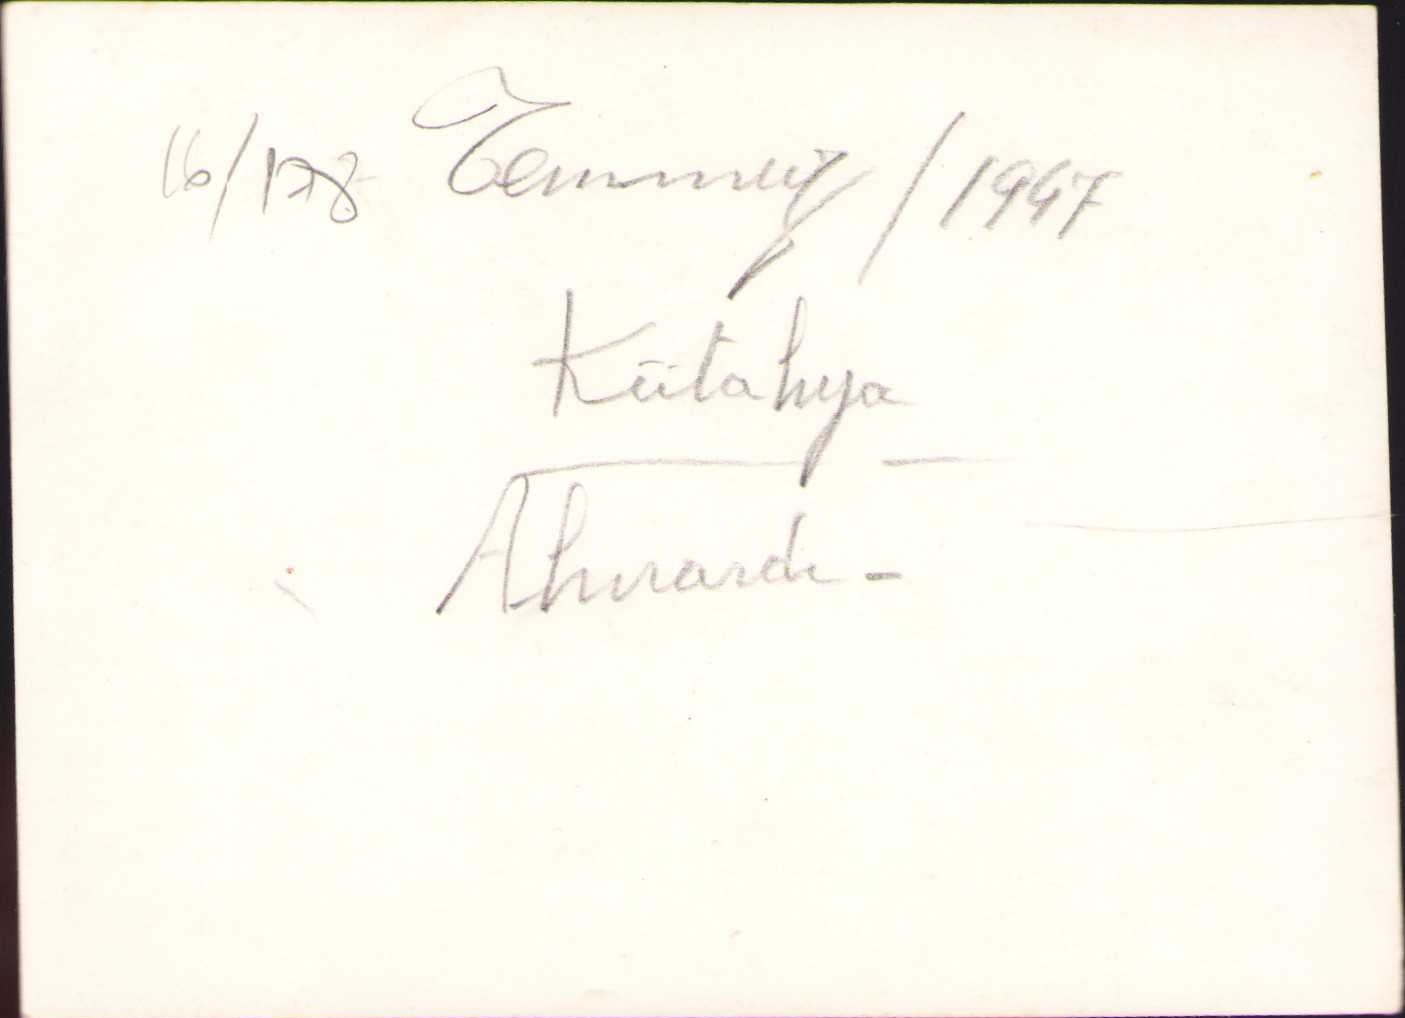 16/178 Temmuz/1947
Kütahya